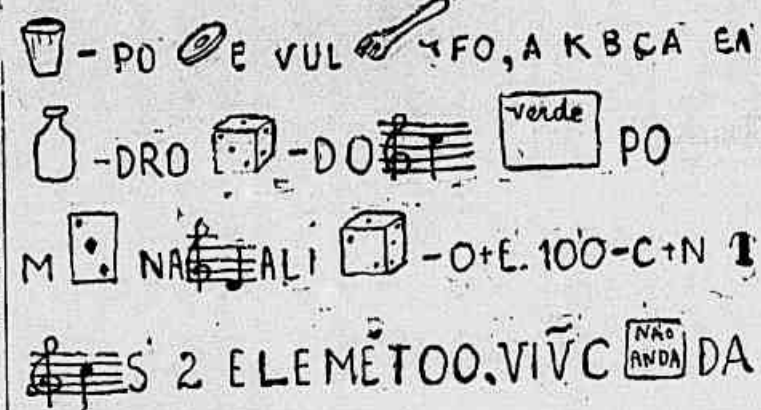 -PO E VUL FO, A K B ÇA EN
-DRO -DO verde PO
M NA ALI -O+E. 100-C+N 1
S 2 ELEMETOO. VIV C NÃO ANDA DA